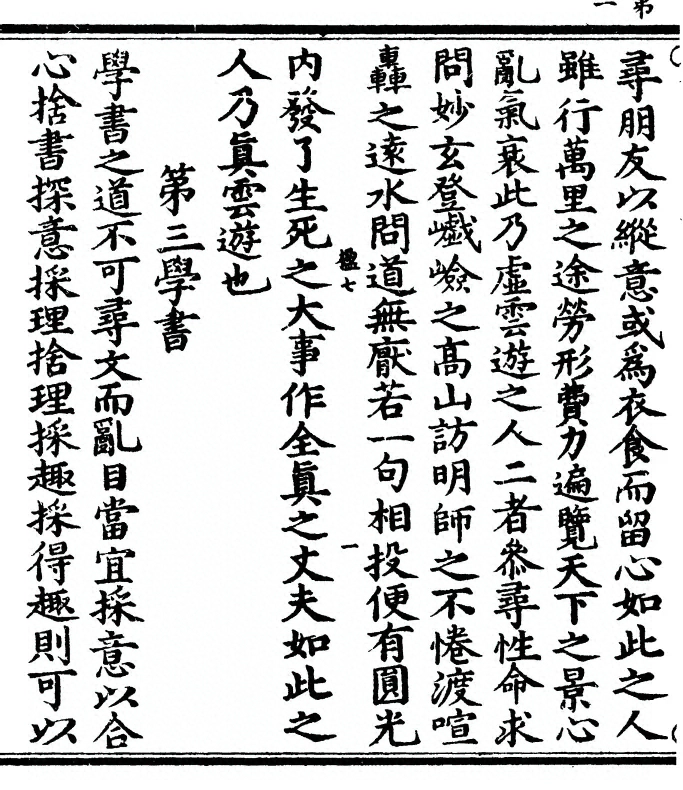 尋朋友以縱意或爲衣食而留心如此之人
雖行萬里之途勞形費力遍覽天下之景心
亂氣衰此乃虛雲遊之人二者叅尋性命求
問妙玄登巇嶮之高山訪明師之不惓渡喧
轟之遠水問道無厭若一句相投便有圓光
楹七
一
内發了生死之大事作全眞之丈夫如此之
人乃眞雲遊也
第三學書
學書之道不可尋文而亂目當宜採意以合
心捨書探意採理捨理採趣採得趣則可以